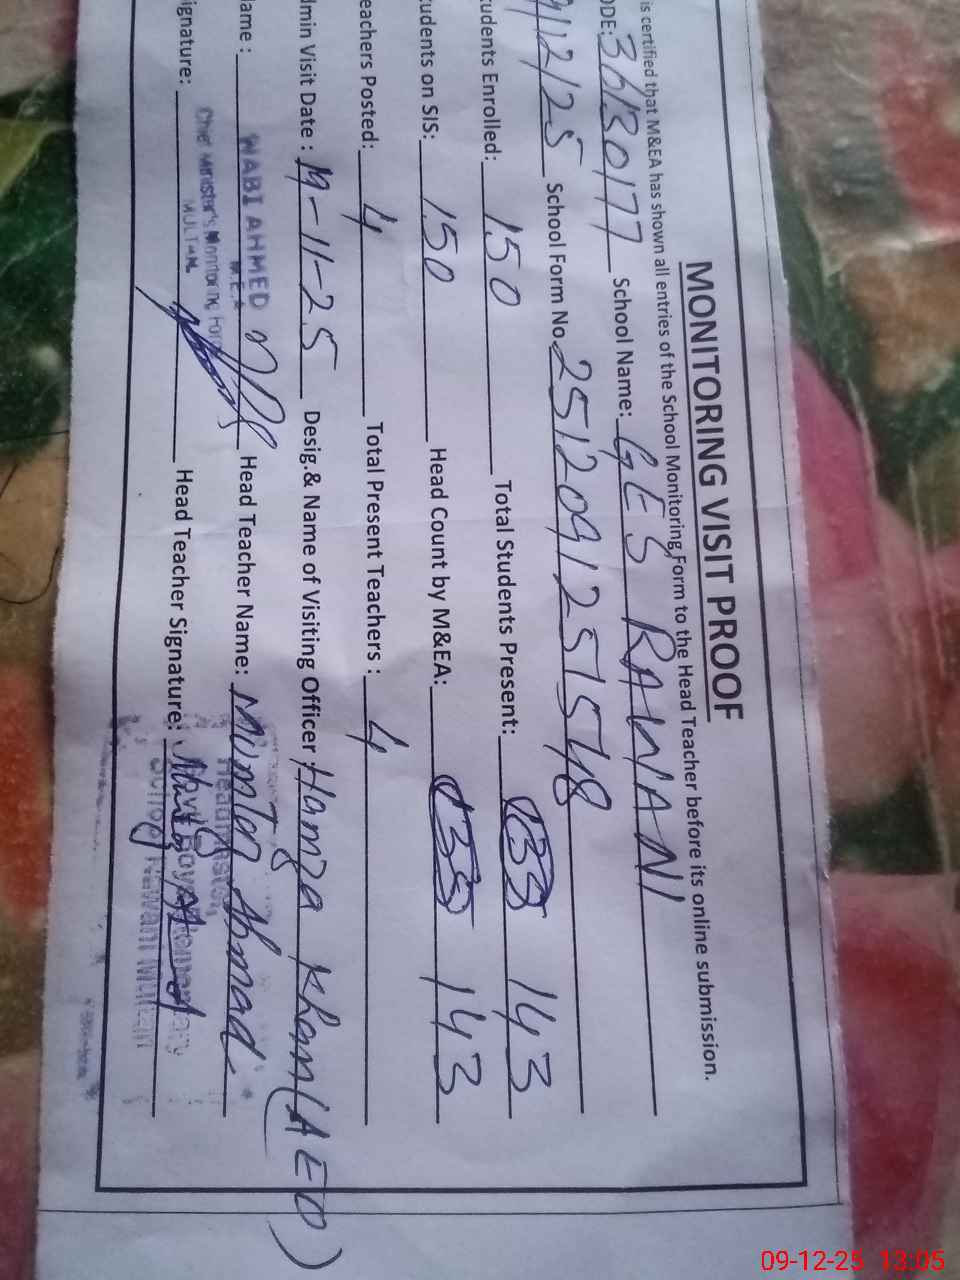 MONITORING VISIT PROOF
is certified that M&EA has shown all entries of the School Monitoring Form to the Head Teacher before its online submission.
ODE: 36130177 School Name: GES RAWANI
9/12/25 School Form No. 2512091251548
tudents Enrolled: 150 Total Students Present: 143
tudents on SIS: 150 Head Count by M&EA: 143
eachers Posted: 4 Total Present Teachers : 4
dmin Visit Date : 19-11-25 Desig.& Name of Visiting Officer : Hamza Khan (AEO)
ame : WABI AHMED Head Teacher Name: Mumtaz Ahmad
M.E.A
ignature: Head Teacher Signature:
Chief Minister's Monitoring Force
MULTAN
Headmaster,
Govt Boys Elementary
School Rawani Multan
09-12-25 13:05